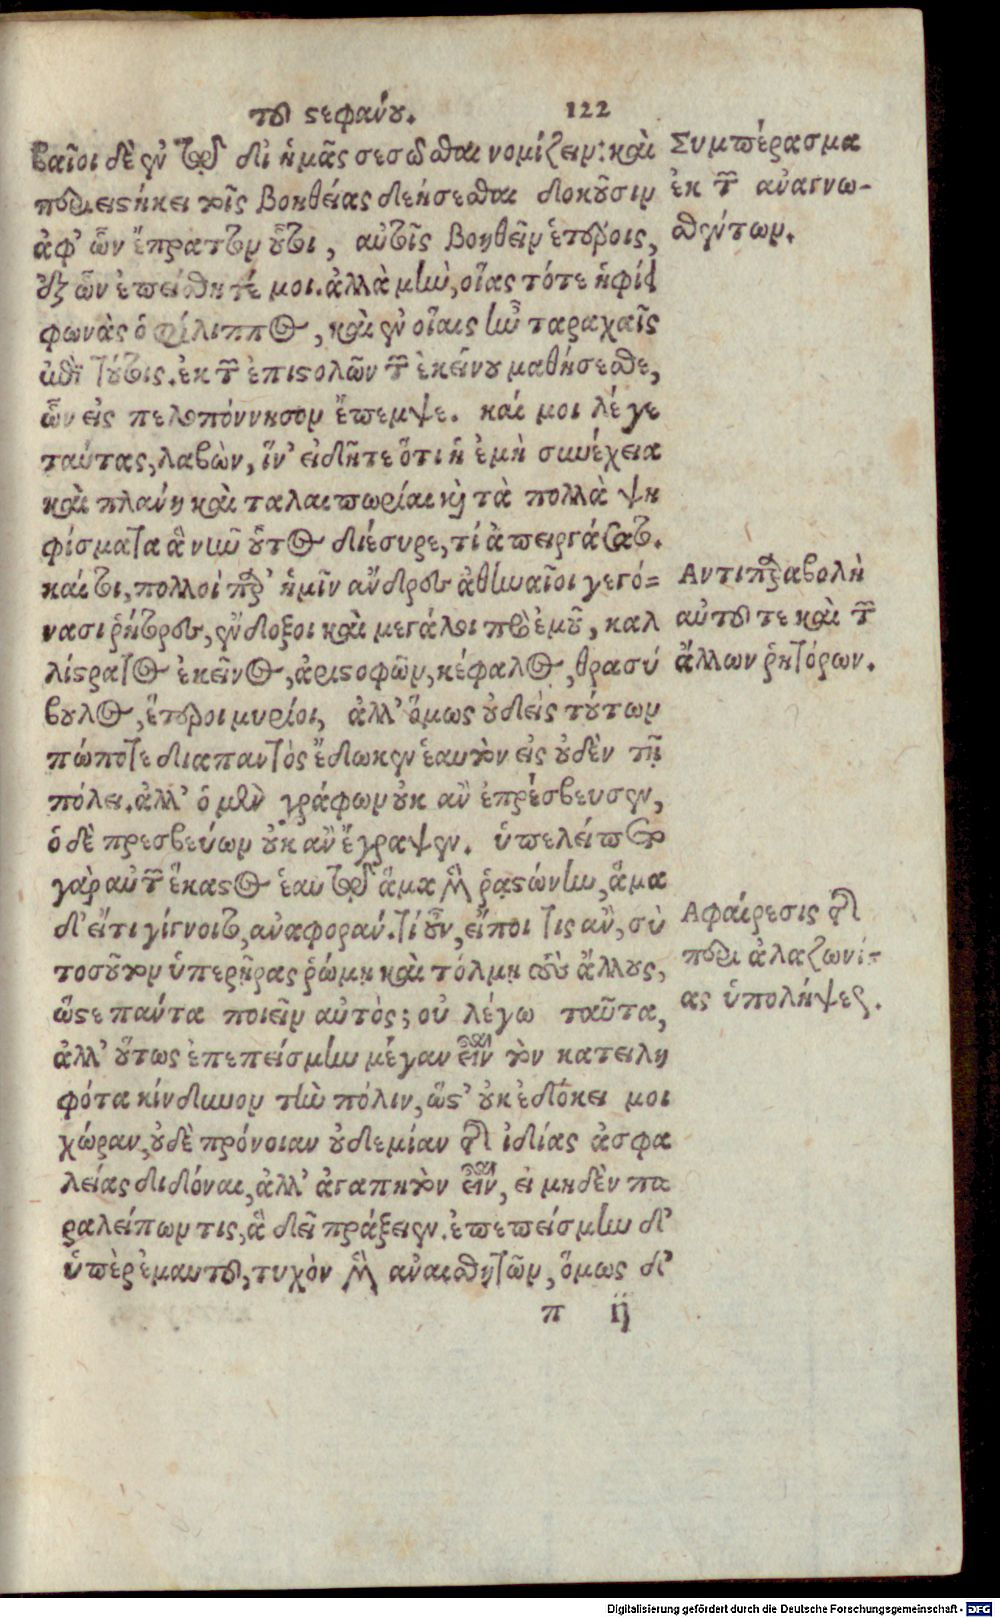 τοῦ στεφάνου. 122
βαῖοι δὲ ἐν τῷ δι' ἡμᾶς σεσῶσθαι νομίζειν: καὶ
περιειστήκει τοῖς βοηθείας δεήσεσθαι δοκοῦσιν
ἀφ' ὧν ἔπραττον οὗτοι, αὐτοῖς βοηθεῖν ἑτέροις,
ἐξ ὧν ἐπείσθητέ μοι. ἀλλὰ μὴν, οἵας τότε ἠφίει
φωνὰς ὁ φίλιππος, καὶ ἐν οἵαις ἦν ταραχαῖς
ἐπὶ τούτοις. ἐκ τῶν ἐπιστολῶν τῶν ἐκείνου μαθήσεσθε,
ὧν εἰς πελοπόννησον ἔπεμψε. καί μοι λέγε
ταύτας, λαβὼν, ἵν' εἰδῆτε ὅτι ἡ ἐμὴ συνέχεια
καὶ πλάνη καὶ ταλαιπωρίαι καὶ τὰ πολλὰ ψη
φίσματα ἃ νῦν οὗτος διέσυρε, τί ἀπειργάσατο.
καίτοι, πολλοὶ παρ' ἡμῖν ἄνδρες ἀθηναῖοι γεγό=
νασι ῥήτορες, ἔνδοξοι καὶ μεγάλοι πρὸ ἐμοῦ, καλ
λίστρατος ἐκεῖνος, ἀριστοφῶν, κέφαλος, θρασύ
βουλος, ἕτεροι μυρίοι, ἀλλ' ὅμως οὐδεὶς τούτων
πώποτε διαπαντὸς ἔδωκεν ἑαυτὸν εἰς οὐδὲν τῇ
πόλει. ἀλλ' ὁ μὲν γράφων οὐκ ἂν ἐπρέσβευσεν,
ὁ δὲ πρεσβεύων οὐκ ἂν ἔγραψεν. ὑπελείπετο
γὰρ αὐτῶν ἕκαστος ἑαυτῷ ἅμα μὲν ῥαστώνην, ἅμα
δ' εἴ τι γίγνοιτο, ἀναφοράν. τί οὖν, εἴποι τις ἂν, σὺ
τοσοῦτον ὑπερῇρας ῥώμῃ καὶ τόλμῃ τοὺς ἄλλους,
ὥστε πάντα ποιεῖν αὐτός; οὐ λέγω ταῦτα,
ἀλλ' οὕτως ἐπεπείσμην μέγαν εἶναι τὸν κατειλη
φότα κίνδυνον τὴν πόλιν, ὥστ' οὐκ ἐδόκει μοι
χώραν, οὐδὲ πρόνοιαν οὐδεμίαν τῆς ἰδίας ἀσφα
λείας διδόναι, ἀλλ' ἀγαπητὸν εἶναι, εἰ μηδὲν πα
ραλείπων τις, ἃ δεῖ πράξειεν. ἐπεπείσμην δ'
ὑπὲρ ἐμαυτοῦ, τυχὸν μὲν ἀναισθητῶν, ὅμως δ'
π ij
Συμπέρασμα
ἐκ τῶν ἀναγνω-
σθέντων.
Αντιπαραβολὴ
αὐτοῦ τε καὶ τῶν
ἄλλων ῥητόρων.
Αφαίρεσις τῆς
περὶ ἀλαζονεί-
ας ὑπολήψεως.
Digitalisierung gefördert durch die Deutsche Forschungsgemeinschaft - DFG